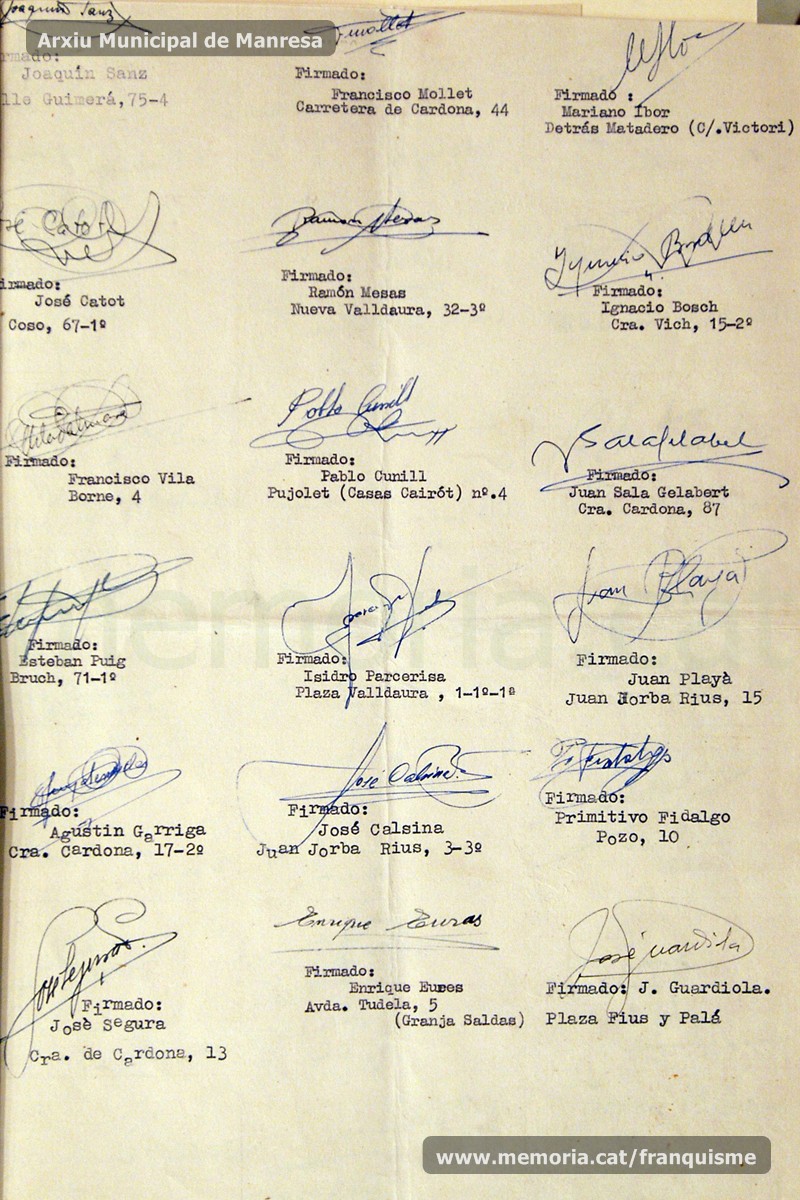 Joaquín Sanz
Arxiu Municipal de Manresa
rmado:
Joaquín Sanz
lle Guimerá,75-4
Fmollet
Firmado:
Francisco Mollet
Carretera de Cardona, 44
Firmado :
Mariano Ibor
Detrás Matadero (C/.Victori)
sé Catot
irmado:
José Catot
Coso, 67-1º
Ramón Mesas
Firmado:
Ramón Mesas
Nueva Valldaura, 32-3º
Ignacio Bosch
Firmado:
Ignacio Bosch
Cra. Vich, 15-2º
Firmado:
Francisco Vila
Borne, 4
Pablo Cunill
Firmado:
Pablo Cunill
Pujolet (Casas Cairót) nº.4
JSalaGelabert
Firmado:
Juan Sala Gelabert
Cra. Cardona, 87
Firmado:
Esteban Puig
Bruch, 71-1º
Firmado:
Isidro Parcerisa
Plaza Valldaura , 1-1º-1ª
Juan Playá
Firmado:
Juan Playà
Juan Jorba Rius, 15
Firmado:
Agustin Garriga
Cra. Cardona, 17-2º
José Calsina
Firmado:
José Calsina
Juan Jorba Rius, 3-3º
Firmado:
Primitivo Fidalgo
Pozo, 10
José Segura
Firmado:
Josè Segura
Cra. de Cardona, 13
Enrique Euras
Firmado:
Enrique Eures
Avda. Tudela, 5
(Granja Saldas)
José Guardiola
Firmado: J. Guardiola.
Plaza Fius y Palá
www.memoria.cat/franquisme